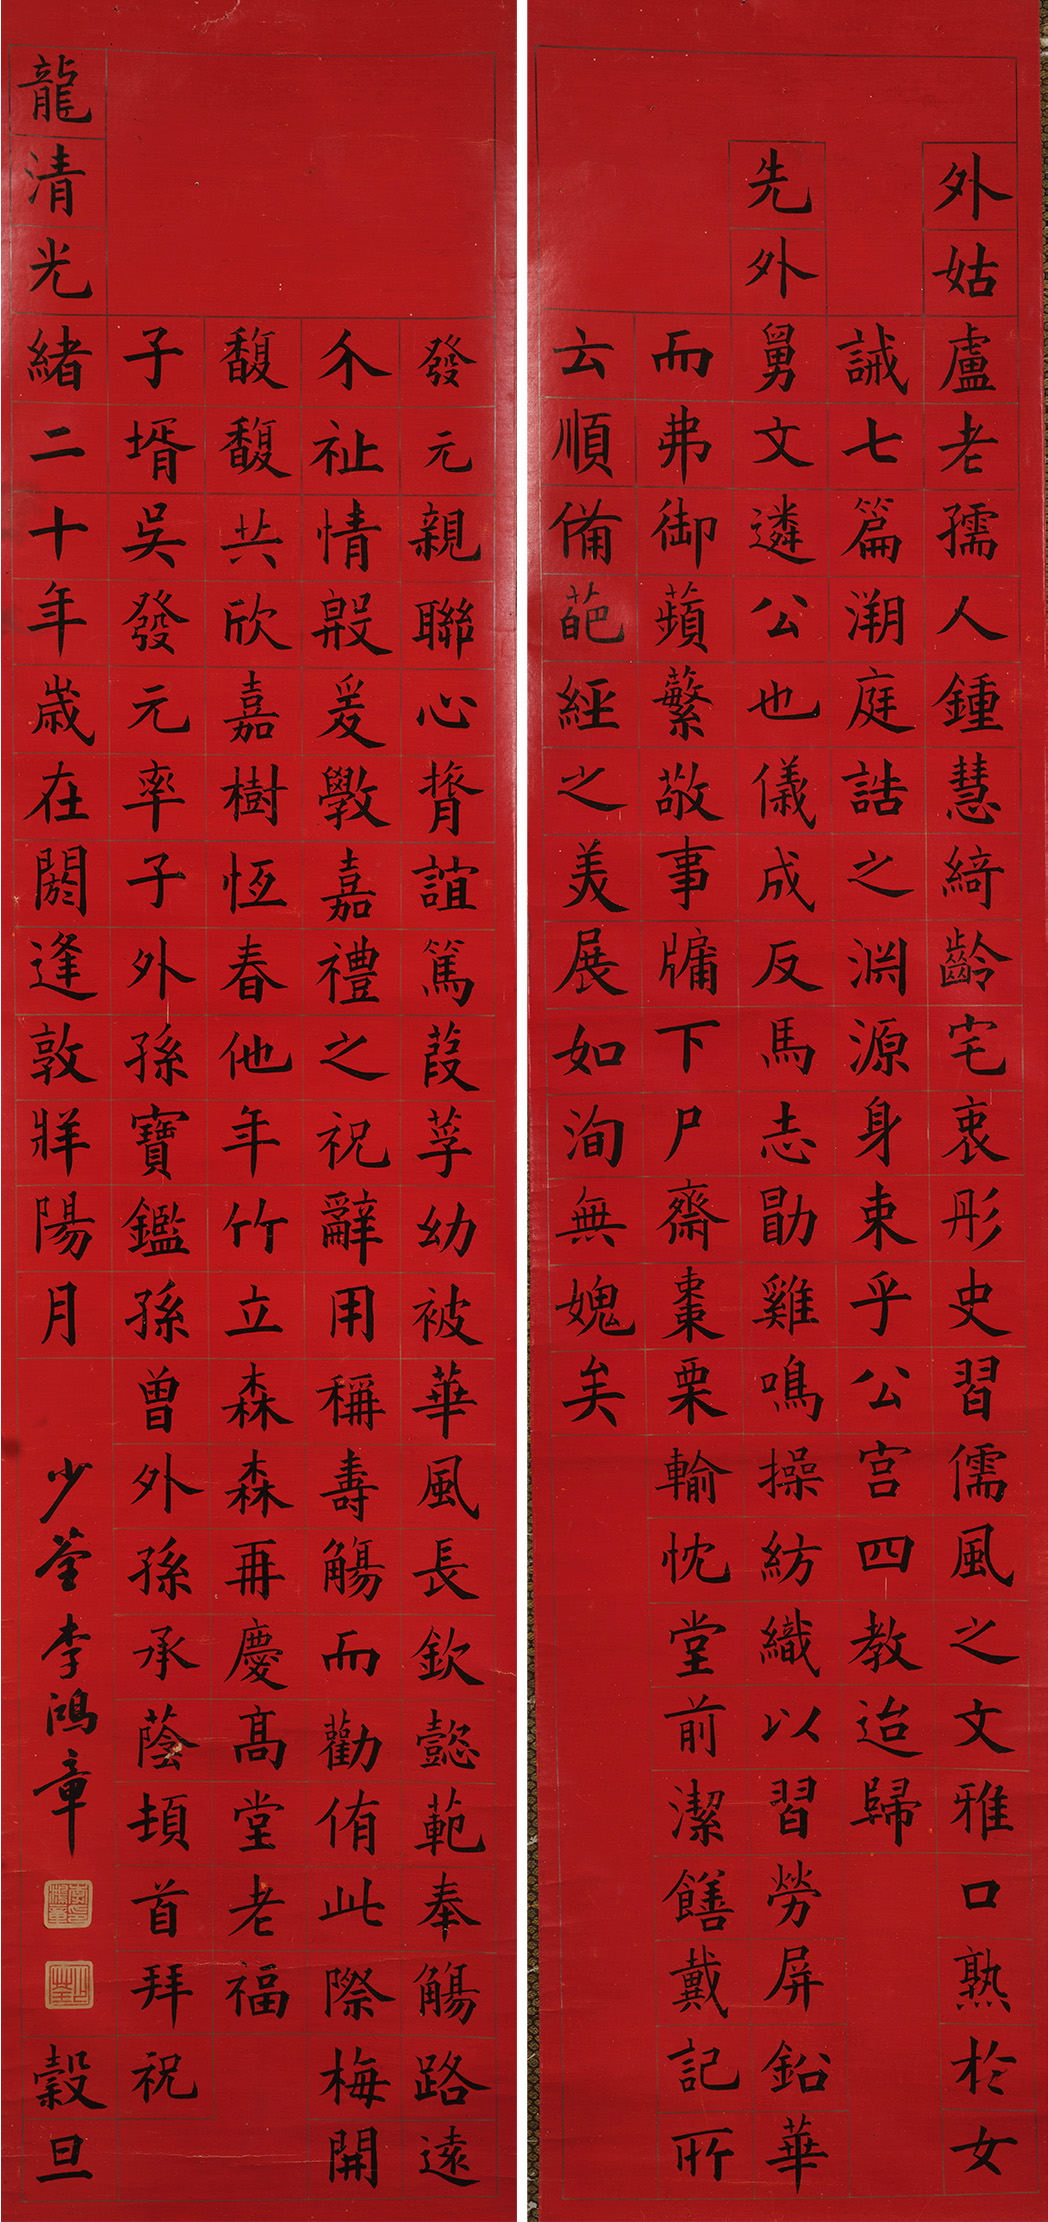 外姑盧老孺人鍾慧綺齡宅衷彤史習儒風之文雅口熟於女
誡七篇溯庭誥之淵源身束乎公宮四教迨歸
先外舅文遴公也儀成反馬志勖雞鳴操紡織以習勞屏鉛華
而弗御蘋蘩敬事牖下尸齋棗栗輸忱堂前潔饍戴記所
云順備葩經之美展如洵無媿矣
發元親聯心膂誼篤葭莩幼被華風長欽懿範奉觴路遠
介祉情殷爰斆嘉禮之祝辭用稱壽觴而勸侑此際梅開
馥馥共欣嘉樹恆春他年竹立森森再慶高堂老福
子壻吳發元率子外孫寶鑑孫曾外孫承蔭頓首拜祝
龍清光緒二十年歲在閼逢敦牂陽月
少荃李鴻章
穀旦